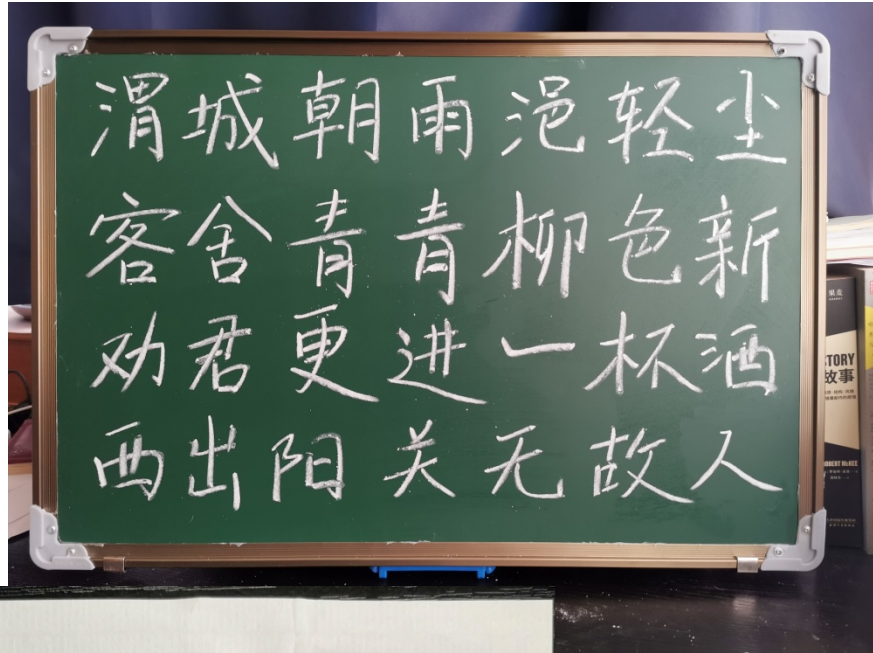 渭城朝雨浥轻尘
客舍青青柳色新
劝君更进一杯酒
西出阳关无故人
果麦
STORY
故事
ROBERT McKEE